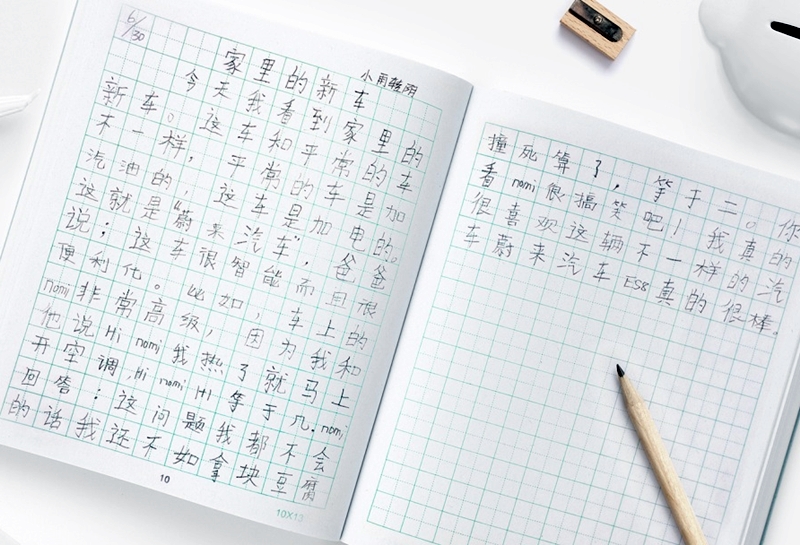 6/30
家里的新车
小雨轻萌
今天我看到家里的
新车。这车和平常的车
不一样，平常的车是加
汽油的，这车是加电的。
这就是“蔚来汽车”，爸爸
说；这车很智能而且很
便利化。比如，车上的
nomi非常高级，因为我和
他说Hi nomi我热了就马上
开空调,Hi nomi 1+1等于几.nomi
回答：这问题我都不会
的话我还不如拿块豆腐
10
10X13
撞死算了，等于二。你
看nomi很搞笑吧！我真的
很喜欢这辆不一样的汽
车蔚来汽车ES8真的很棒。